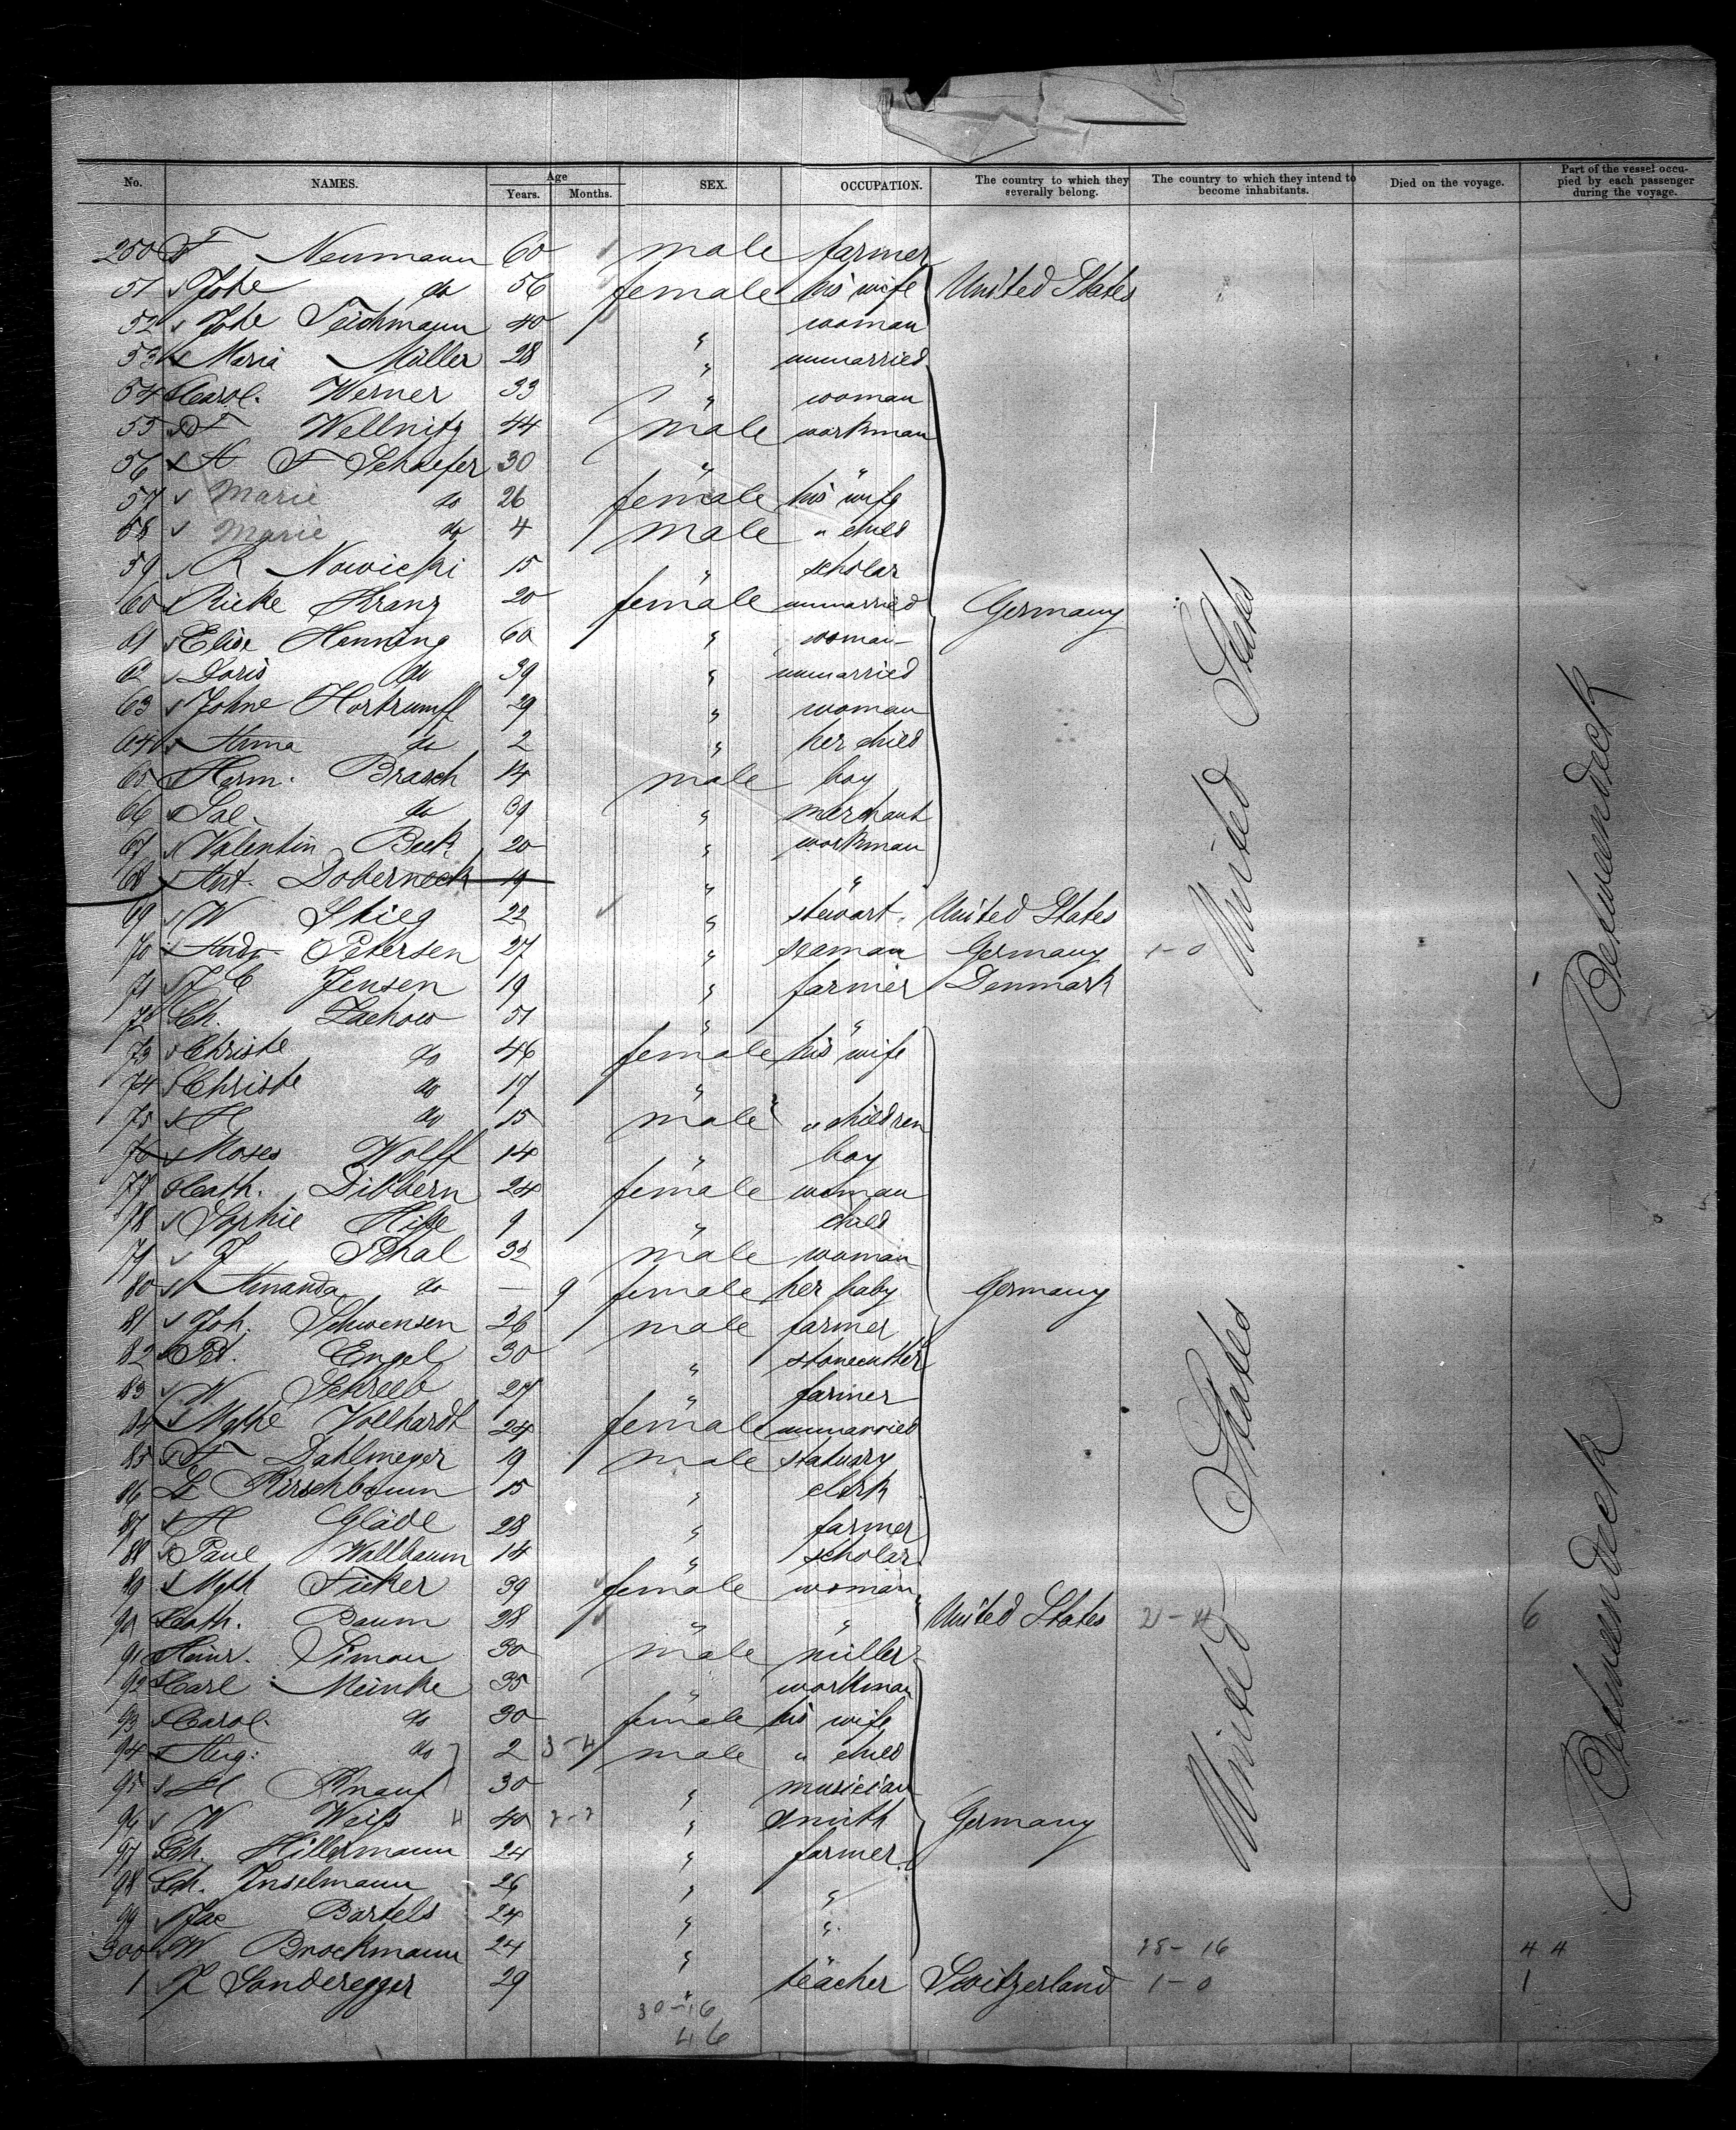 No. NAMES. Age Years. Months. SEX. OCCUPATION. The country to which they severally belong. The country to which they intend to become inhabitants. Died on the voyage. Part of the vessel occupied by each passenger during the voyage.
250 F Neumann 60 male farmer
51 Johe do 56 female his wife United States
52 Johe Teichmann 40 " woman
53 Maria Müller 28 " unmarried
54 Carol. Werner 33 " woman
55 F Wellnitz 44 male workman
56 A F Schaefer 30 " "
57 Marie do 26 female his wife
58 Marie do 4 male " child
59 R Nowicki 15 " scholar
60 Rieke Kranz 20 female unmarried Germany
61 Elise Henning 60 " woman
62 Doris do 39 " unmarried
63 Johne Hortrumpf 29 " woman
64 Anna do 2 " her child
65 Herm. Brasch 14 male boy
66 Sal. do 39 " merchant
67 Valentin Beck 20 " workman
68 Ant. Doberneck 19 " "
69 W Stieg 22 " stewart United States
70 Andr. Petersen 27 " seaman Germany 1-0
71 J C Jensen 19 " farmer Denmark 1
72 Ch. Zachow 51 " "
73 Christe do 46 female his wife
74 Christe do 17 "
75 H do 15 male " children
76 Moses Wolff 14 " boy
77 Cath. Dibbern 24 female woman
78 Sophie Hiße 9 " child
79 J Thal 32 male woman
80 Amanda do — 9 female her baby Germany
81 Joh. Schwensen 26 male farmer
82 Pet. Engel 30 " stonecutter
83 W Schreeb 27 " farmer
84 Mathe Vollhardt 24 female unmarried
85 F Dahlmeyer 19 male statuary
86 L Kirschbaum 15 " clerk
87 H Gläde 28 " farmer
88 Paul Wallbaum 14 " scholar
89 Mgth Ficker 39 female woman
90 Cath. Baum 28 " " United States 2-4 6
91 Heinr. Simon 30 male miller
92 Carl Meinke 35 " workman
93 Carol. do 30 female his wife
94 Aug. do 2 3-4 male " child
95 H Knauf 30 " musician
96 W Weiß 4 40 2-2 " smith Germany
97 Ch. Hillermann 24 " farmer
98 Ch. Inselmann 26 " "
99 Jac Bartels 24 " "
300 W Brockmann 24 " 28-16 44
1 J Sonderegger 29 " teacher Switzerland 1-0 1
30-16
46
United States
United States
Betweendeck
Betweendeck